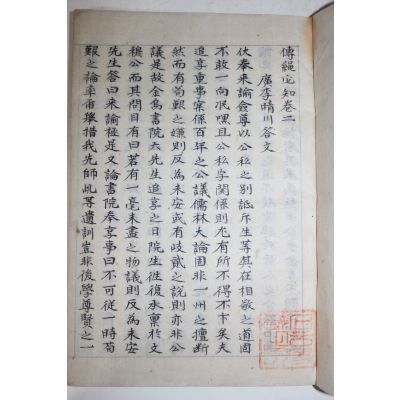 傳疑必知卷二
廣李晴川答文
伏奉來諭僉尊以公私之別詬斥生等其在相敬之道固
不敢一向泯嘿且公私字關係則尤有所不得不卞矣夫
追享重事案係百年之公議儒林大論固非一州之擅斷
然而有苟艱之嫌則反為未安或有歧貳之說則亦非公
議是故金烏書院六先生追享之日院生徃復承稟於文
穆公而其問目有曰若有一毫未盡之物議則反為未安
先生答曰來諭極是又論書院奉享事曰不可從一時苟
艱之論率甭舉措我先師此等遺訓豈非後學尊賢之一